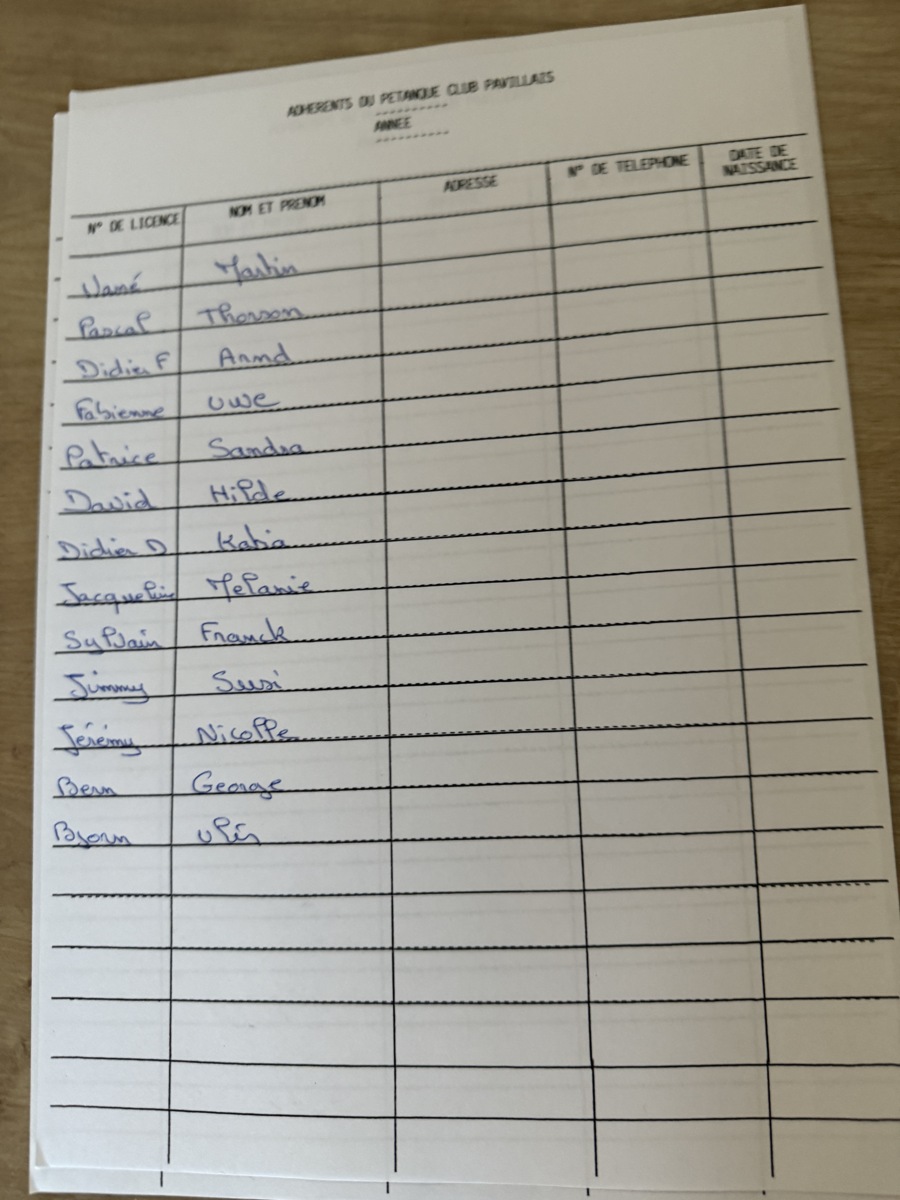 ADHERENTS DU PETANQUE CLUB PAVILLAIS
ANNEE
N° DE LICENCE NOM ET PRENOM ADRESSE N° DE TELEPHONE DATE DE NAISSANCE
Martin
Pascal Thorson
Didier F Arnd
Fabienne Uwe
Patrice Sandra
David Hilde
Didier D Katia
Jacqueline Melanie
Sylvain Franck
Jimmy Susi
Jérémy Nicolle
Bern George
Bjorn